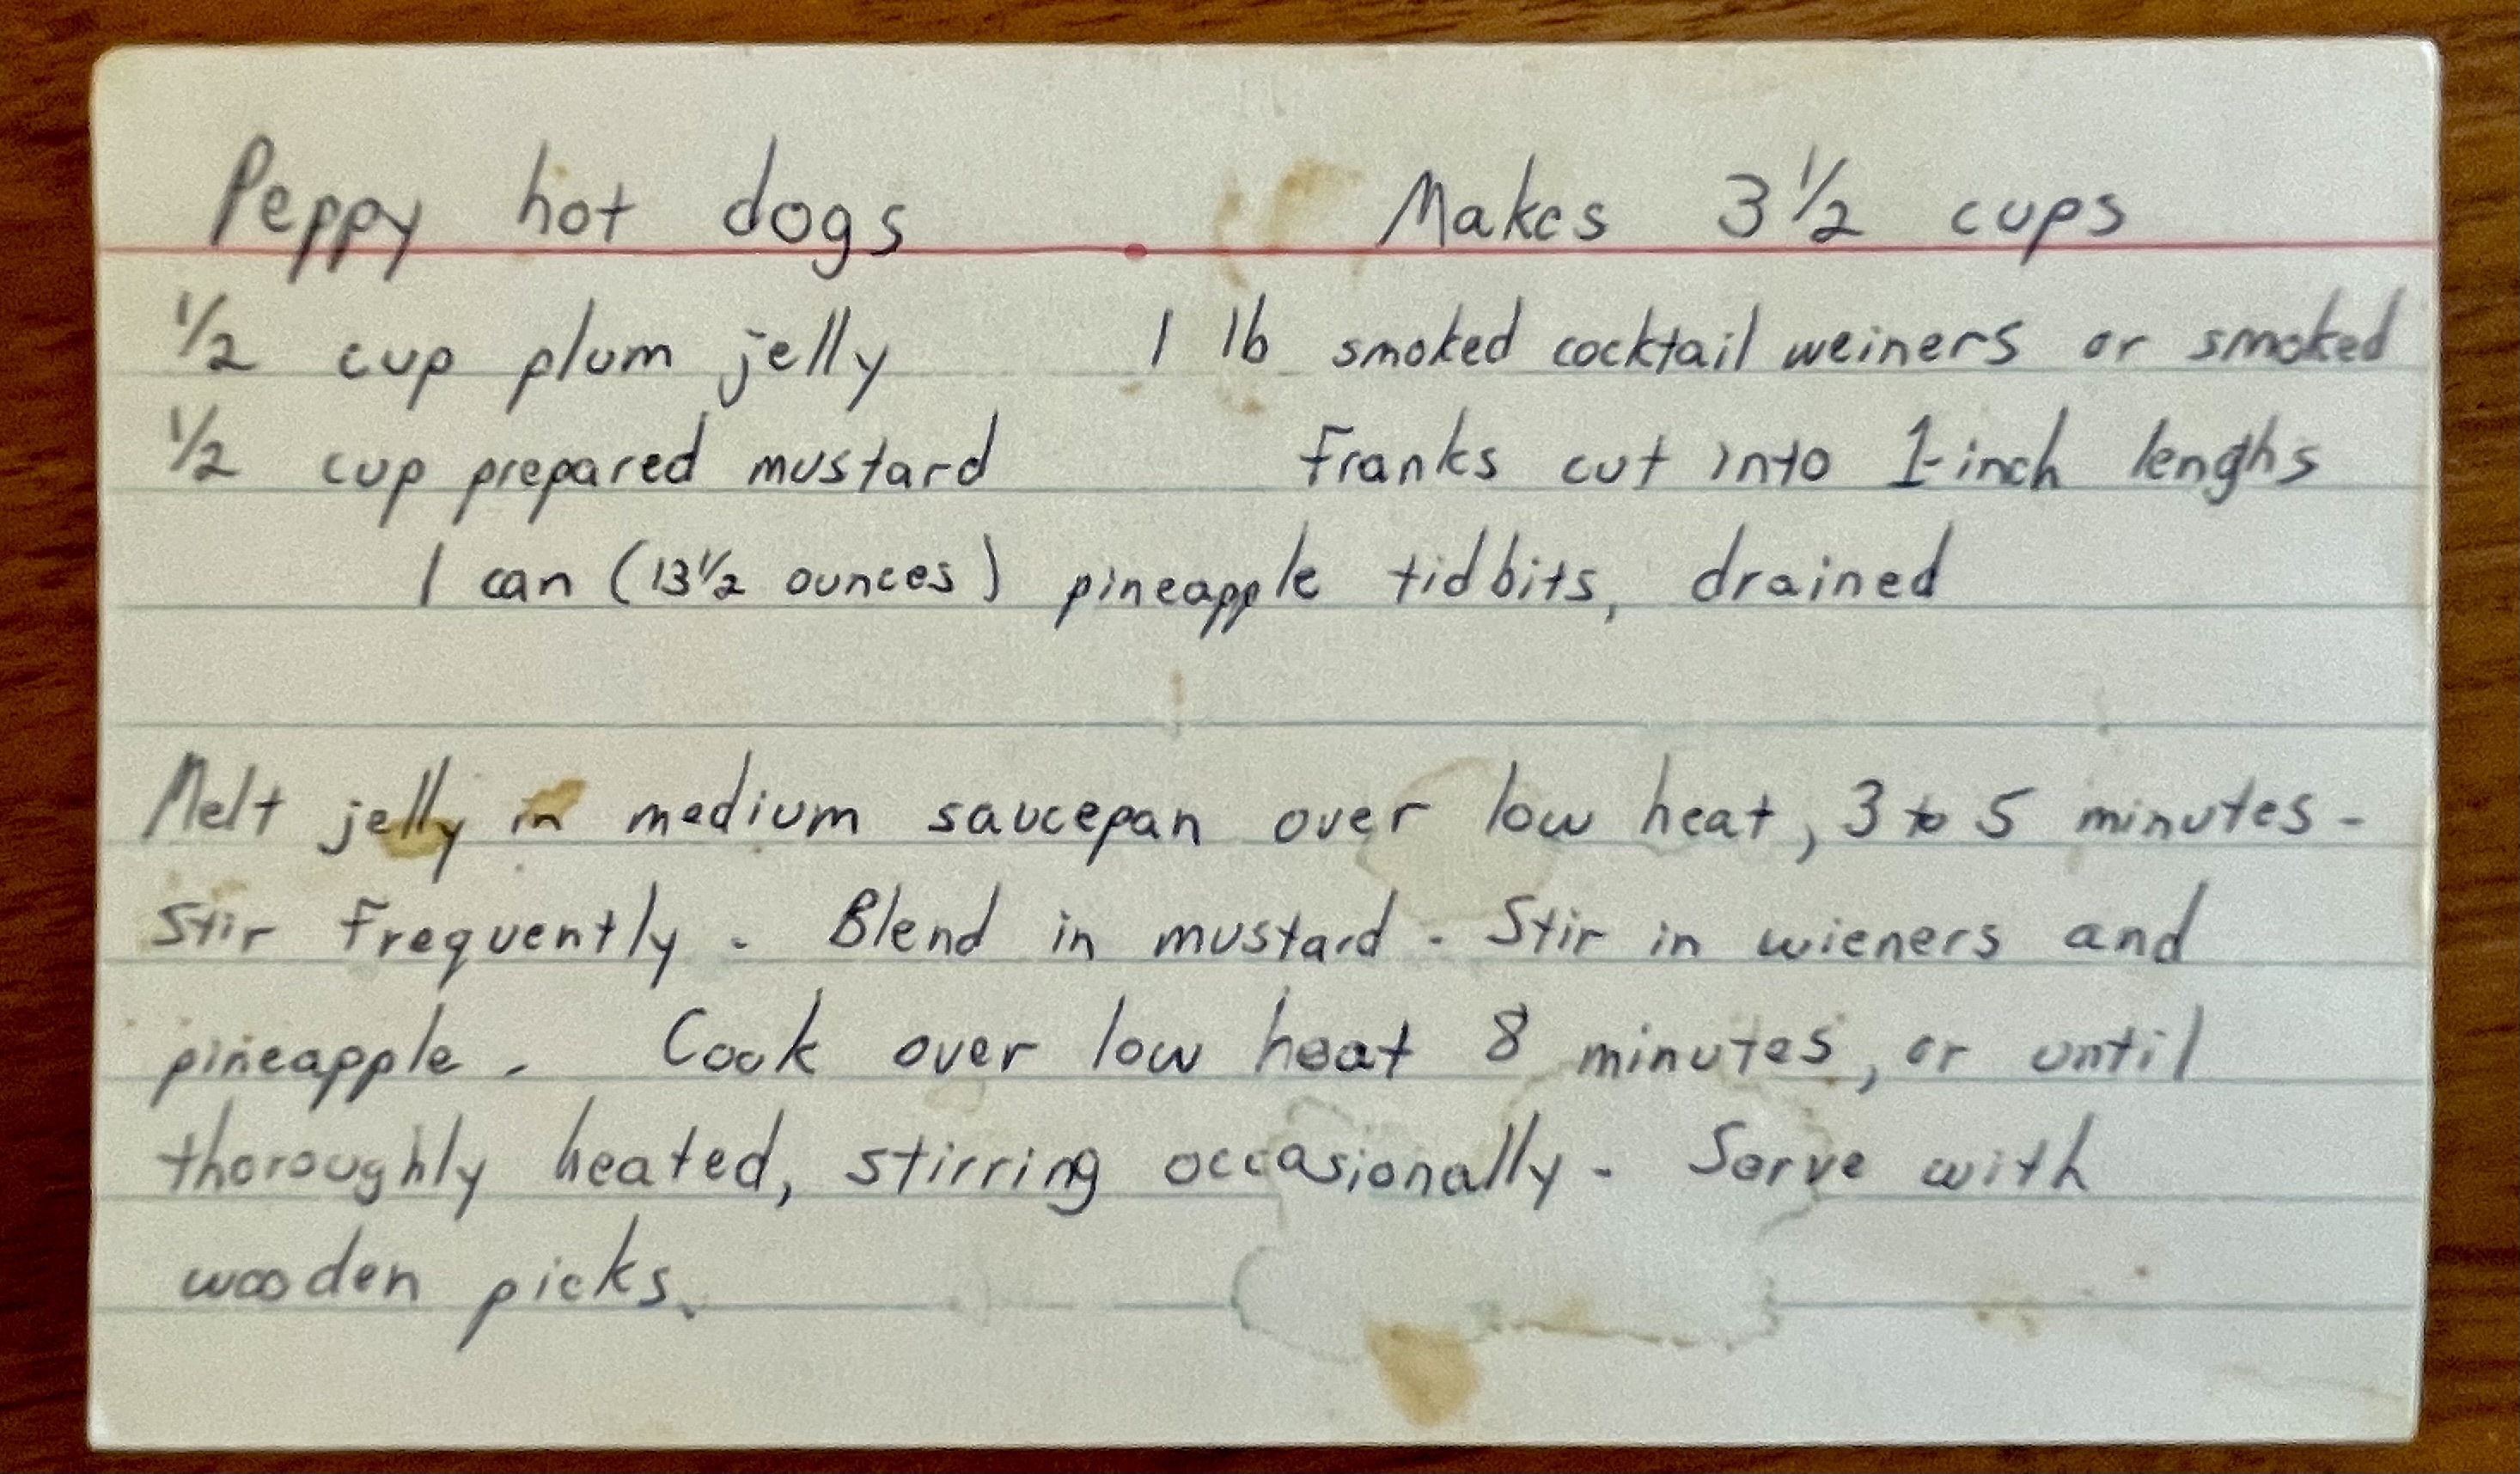 Peppy hot dogs Makes 3 1/2 cups
1/2 cup plum jelly 1 lb smoked cocktail weiners or smoked
1/2 cup prepared mustard Franks cut into 1-inch lenghs
1 can (13 1/2 ounces) pineapple tidbits, drained
Melt jelly in medium saucepan over low heat, 3 to 5 minutes.
Stir frequently. Blend in mustard. Stir in wieners and
pineapple. Cook over low heat 8 minutes, or until
thoroughly heated, stirring occasionally. Serve with
wooden picks.